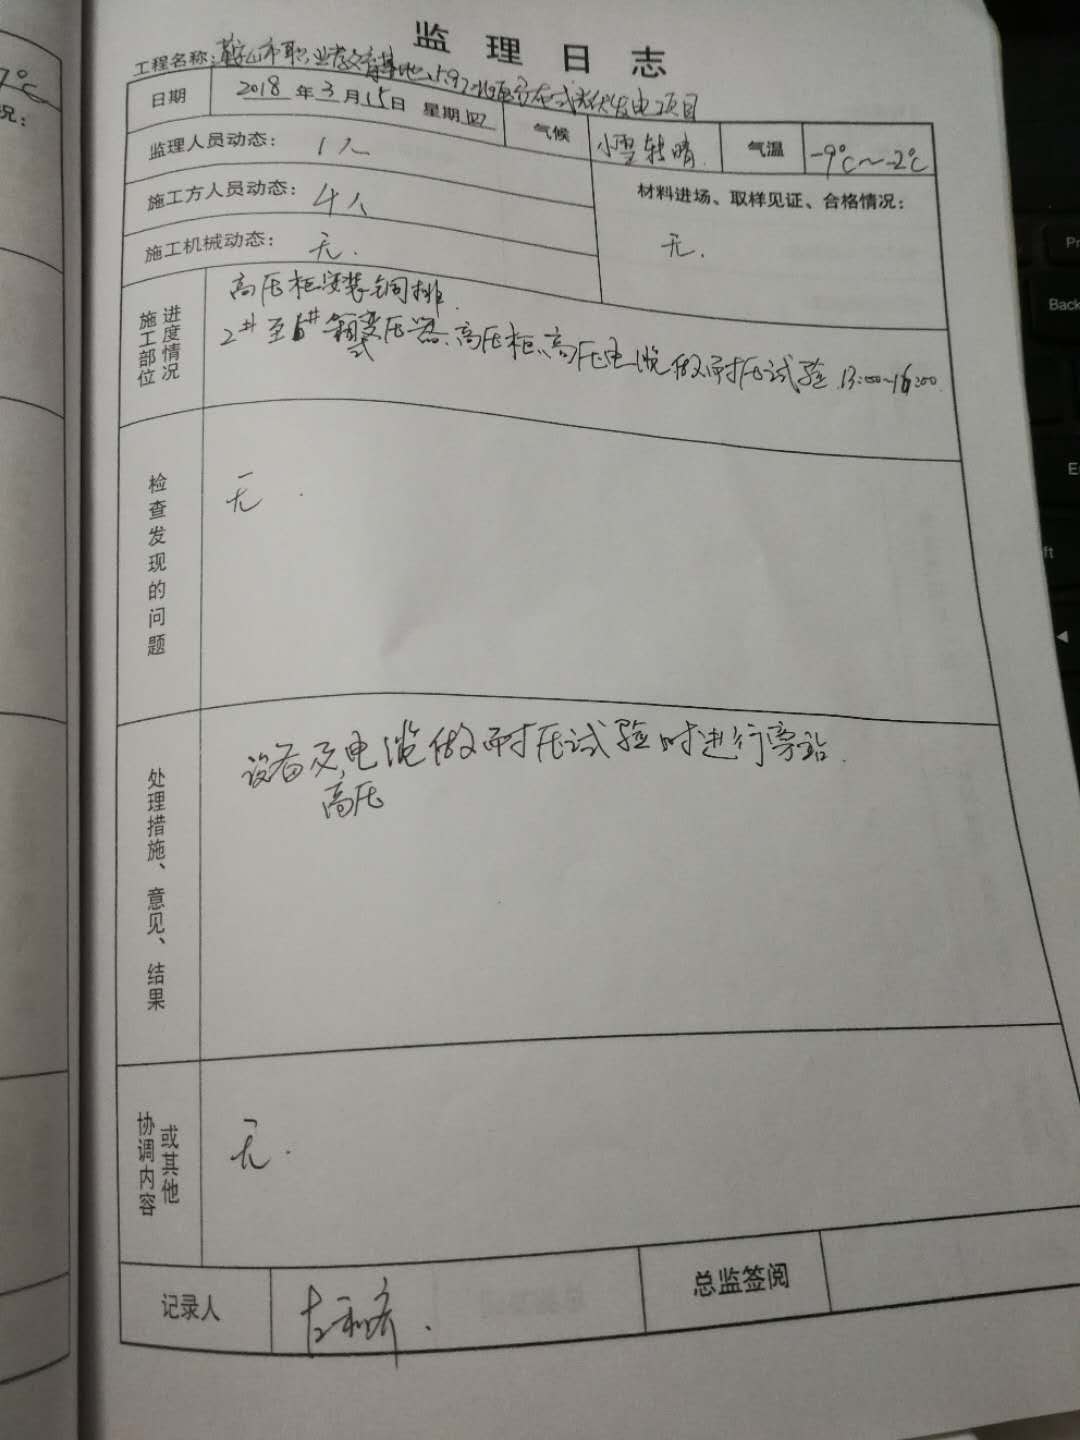 监理日志
工程名称：鞍山市职业教育基地5.97兆瓦分布式光伏发电项目
日期 2018年3月15日 星期四 气候 小雪转晴. 气温 -9℃～-2℃
监理人员动态： 1人
材料进场、取样见证、合格情况：
施工方人员动态： 4人
无.
施工机械动态： 无.
施工部位 进度情况
高压柜安装铜排.
2#至6#箱式变压器、高压柜、高压电缆做耐压试验 13:00~16:00
检查发现的问题
无.
处理措施、意见、结果
设备及高压电缆做耐压试验时进行旁站.
协调内容 或其他
无.
记录人
总监签阅
7℃
况：